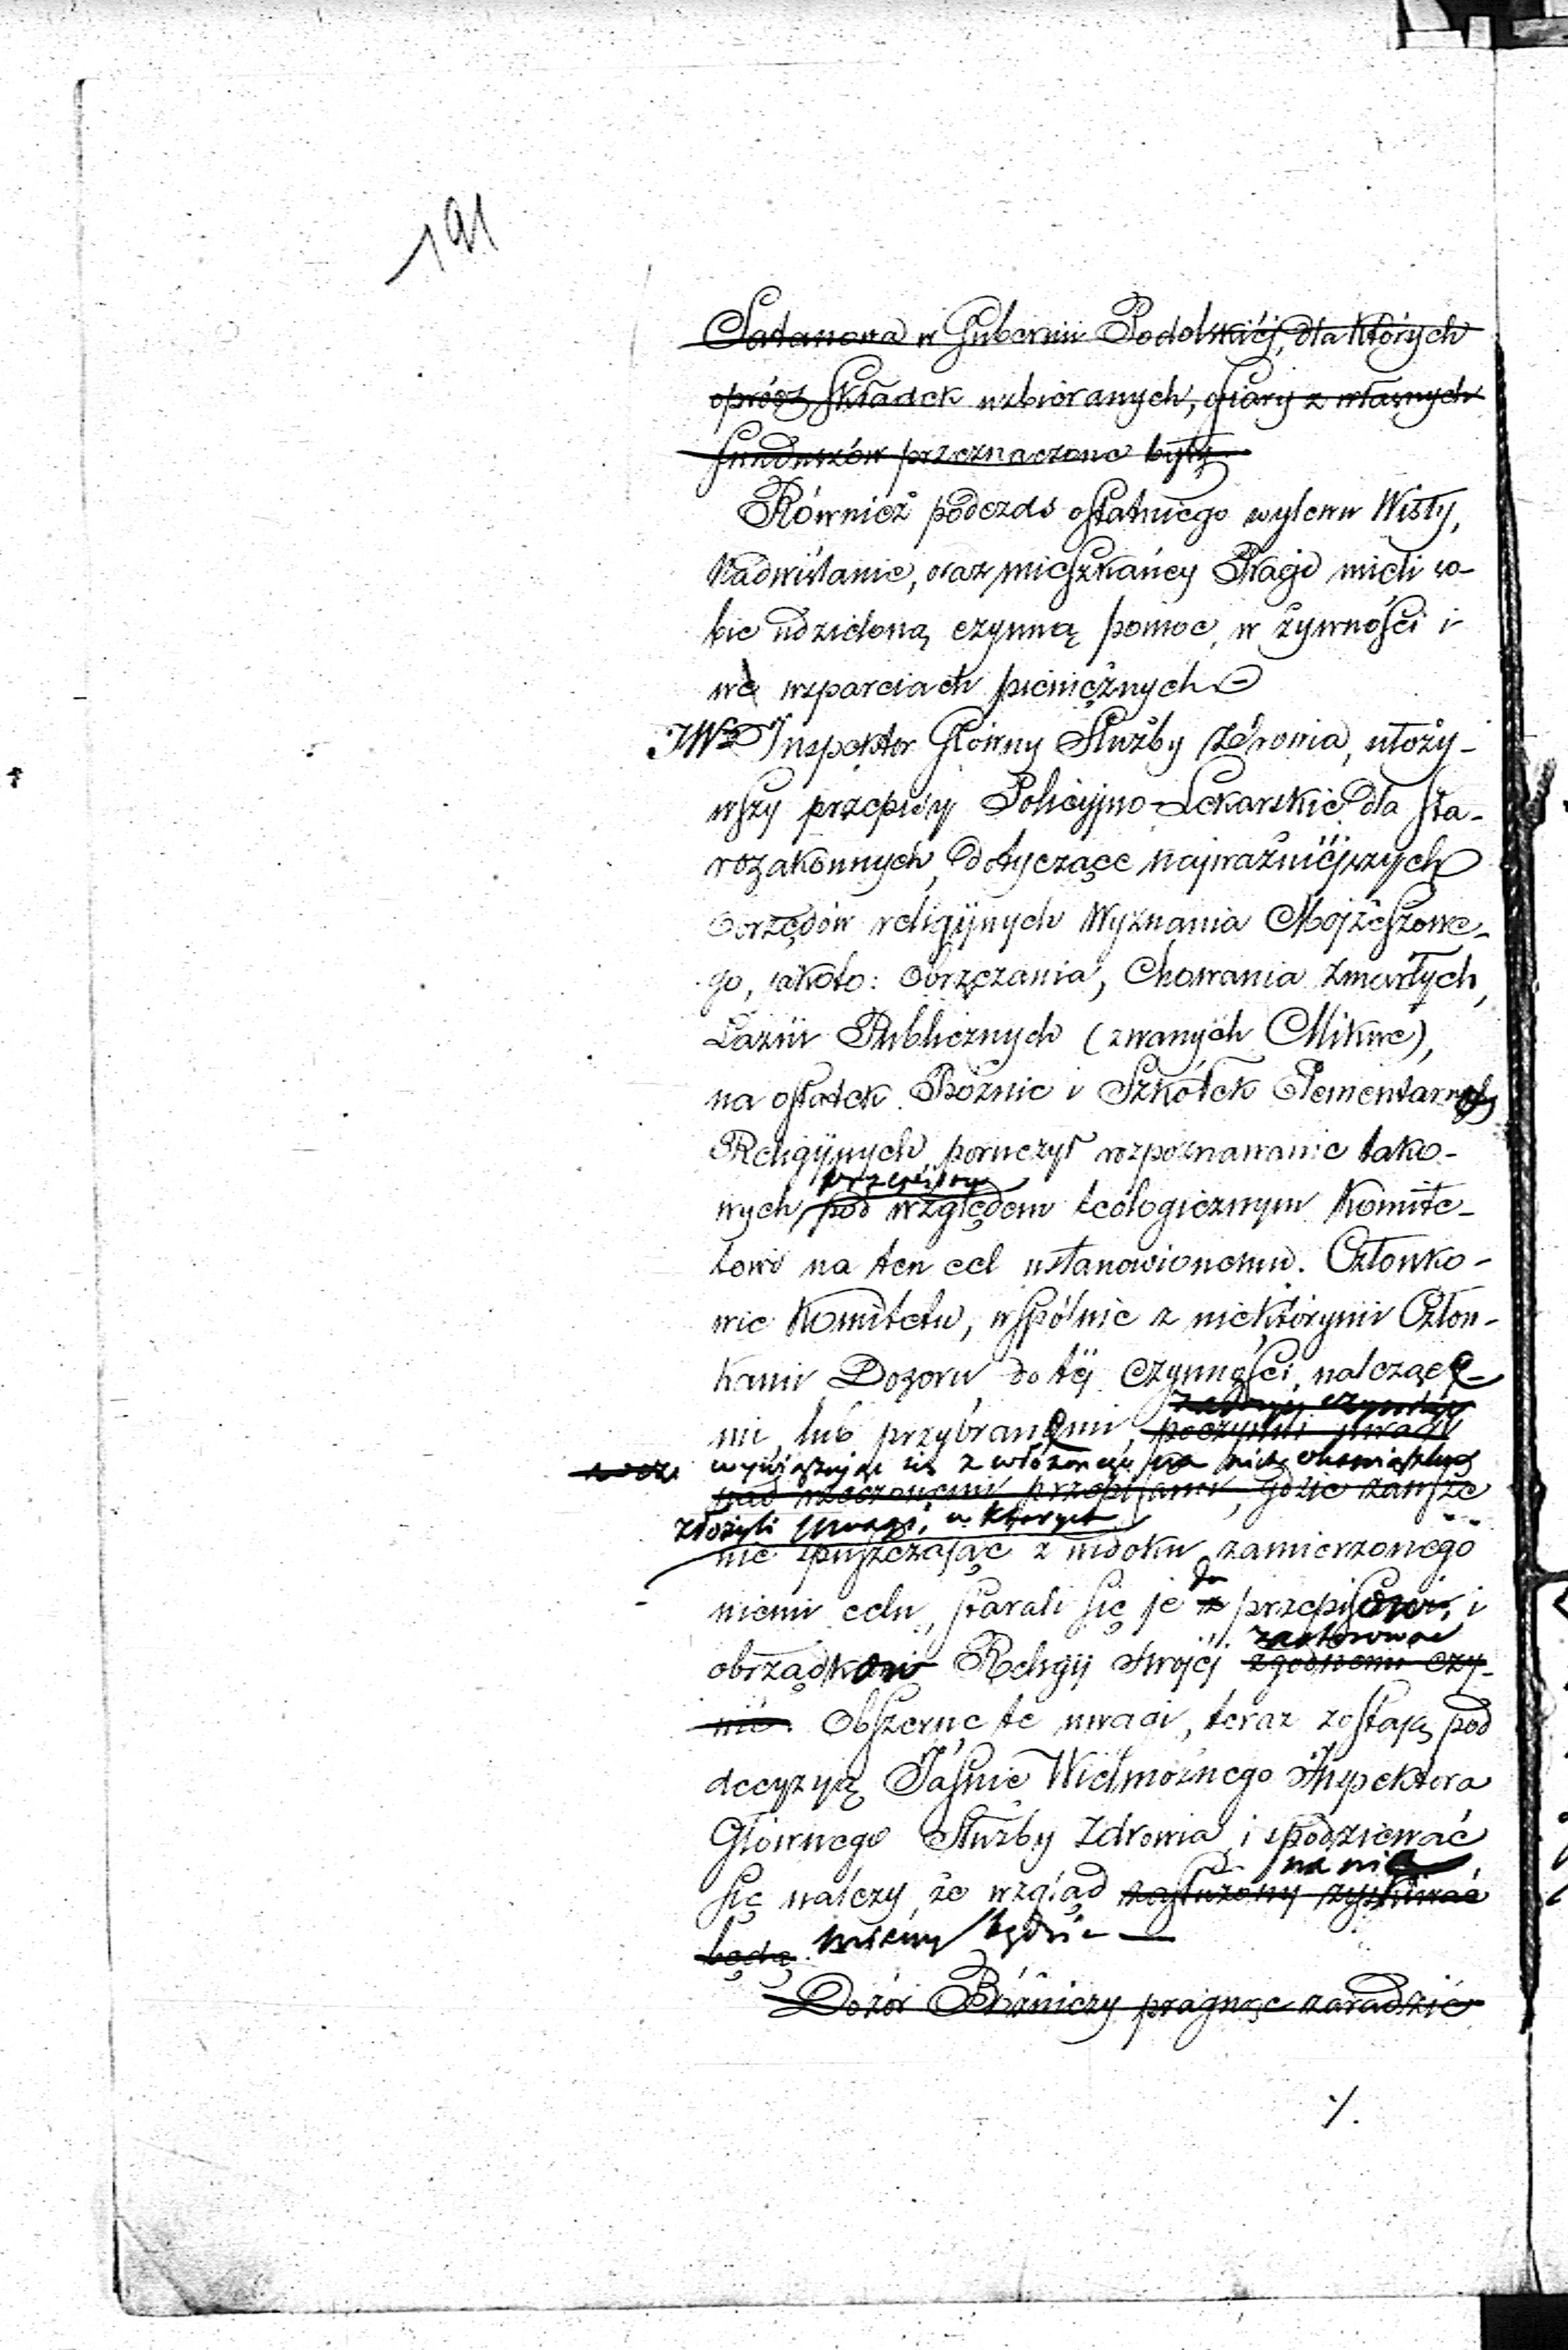 191
Satanowa w Gubernii Podolskiéj, dla których
oprócz składek uzbieranych, ofiary z własnych
funduszów przeznaczone były.
Również podczas ostatniego wylewu Wisły,
Nadwiślanie, oraz mieszkańcy Pragi mieli so-
bie udzieloną czynną pomoc, w żywności i
we wsparciach pieniężnych
JW. Inspektor Główny Służby Zdrowia, ułoży-
wszy przepisy Policyjno-Lekarskie dla sta-
rozakonnych, dotyczące najważniéjszych
obrzędów religijnych Wyznania Mojżeszowe-
go, jakoto: obrzezania, Chowania zmarłych,
Łazień Publicznych (zwanych Mikwe),
na ostatek Bóżnic i Szkółek Elementarnych
Religijnych, poruczył rozpoznawanie tako-
przepisów
wych pod względem teologicznym Komite-
towi na ten cel ustanowionemu. Członko-
wie Komitetu, wspólnie z niektórymi Człon-
kami Dozoru do téj czynności należące-
mi, lub przybranemi, poczynili uwagi
wywiązując się z włożonego na nich obowiązku
nad rzeczonemi przepisami, gdzie zawsze
złożyli uwagi, w których
nie spuszczając z widoku zamierzonego
niemi celu, starali się je do przepisów i
zastosować
obrządków Religij swojéj zgodnemi czy-
nić. Obszerne te uwagi, teraz zostają pod
decyzyą Jaśnie Wielmożnego Inspektora
Głównego Służby Zdrowia, i spodziewać
na nie
się należy, że wzgląd zasłużony zyskiwać
będą. miany będzie
Dozór Bóżniczy pragnąc zaradzić
./.